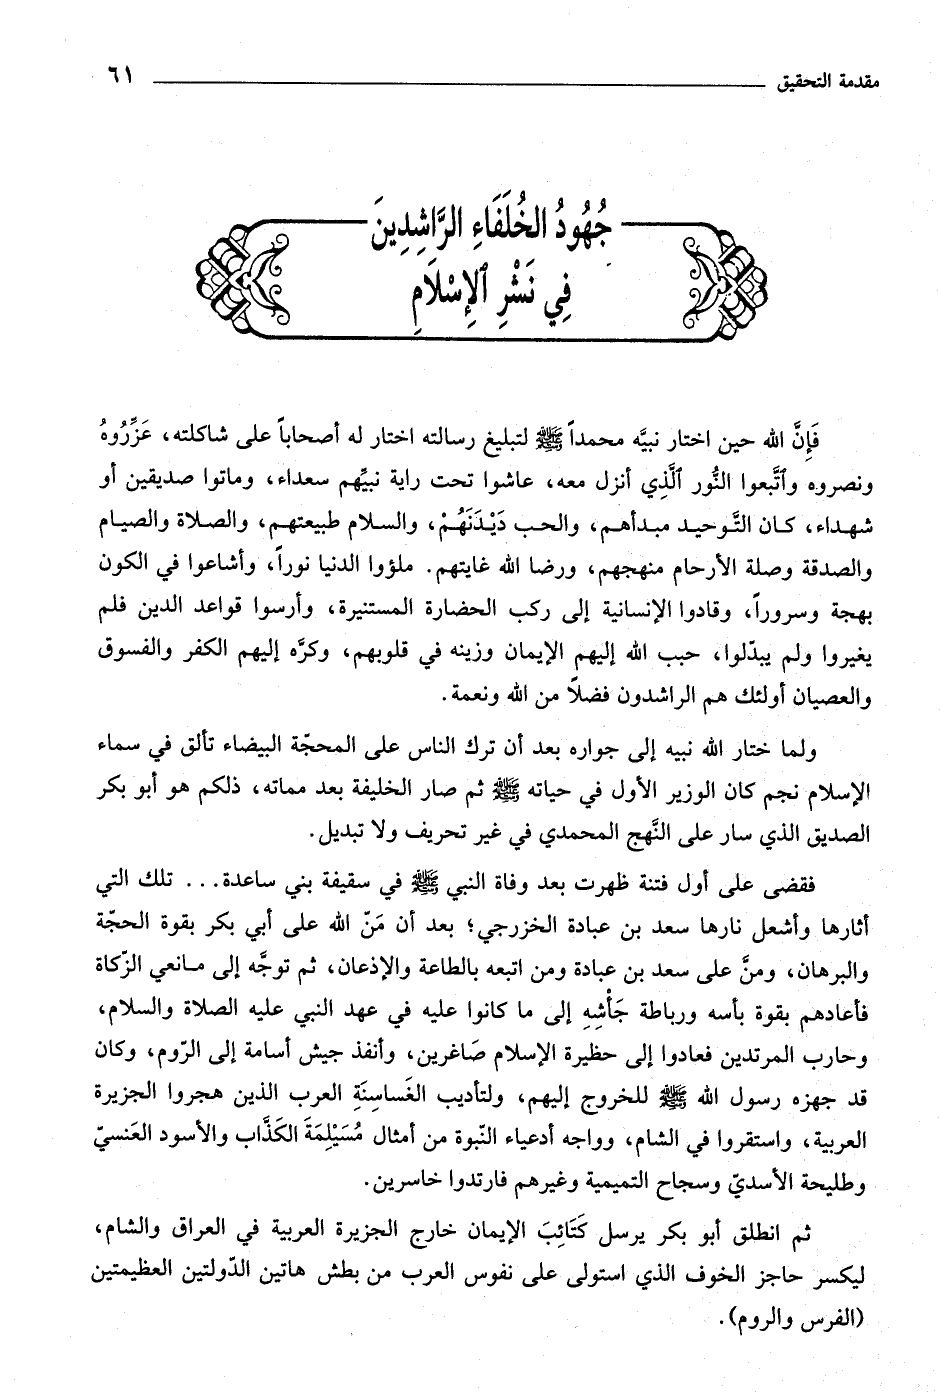 مقدمة التحقيق ٦١
جُهُودُ الخُلَفَاءِ الرَّاشِدِينَ
فِي نَشْرِ ٱلإِسْلَامِ
فَإِنَّ الله حين اختار نبيَّه محمداً ﷺ لتبليغ رسالته اختار له أصحاباً على شاكلته، عَزَّرُوهُ
ونصروه وٱتَّبعوا النُّور ٱلَّذِي أنزل معه، عاشوا تحت راية نبيِّهم سعداء، وماتوا صديقين أو
شهداء، كان التَّوحيد مبدأهم، والحب دَيْدَنَهُمْ، والسلام طبيعتهم، والصلاة والصيام
والصدقة وصلة الأرحام منهجهم، ورضا الله غايتهم. ملؤوا الدنيا نوراً، وأشاعوا في الكون
بهجة وسروراً، وقادوا الإنسانية إلى ركب الحضارة المستنيرة، وأرسوا قواعد الدين فلم
يغيروا ولم يبدّلوا، حبب الله إليهم الإيمان وزينه في قلوبهم، وكرَّه إليهم الكفر والفسوق
والعصيان أولئك هم الراشدون فضلاً من الله ونعمة.
ولما ختار الله نبيه إلى جواره بعد أن ترك الناس على المحجّة البيضاء تألق في سماء
الإسلام نجم كان الوزير الأول في حياته ﷺ ثم صار الخليفة بعد مماته، ذلكم هو أبو بكر
الصديق الذي سار على النَّهج المحمدي في غير تحريف ولا تبديل.
فقضى على أول فتنة ظهرت بعد وفاة النبي ﷺ في سقيفة بني ساعدة... تلك التي
أثارها وأشعل نارها سعد بن عبادة الخزرجي؛ بعد أن مَنّ الله على أبي بكر بقوة الحجّة
والبرهان، ومنَّ على سعد بن عبادة ومن اتبعه بالطاعة والإذعان، ثم توجَّه إلى مانعي الزّكاة
فأعادهم بقوة بأسه ورباطة جَأْشِهِ إلى ما كانوا عليه في عهد النبي عليه الصلاة والسلام،
وحارب المرتدين فعادوا إلى حظيرة الإسلام صَاغرين، وأنفذ جيش أسامة إلى الرّوم، وكان
قد جهزه رسول الله ﷺ للخروج إليهم، ولتأديب الغَساسِنَةِ العرب الذين هجروا الجزيرة
العربية، واستقروا في الشام، وواجه أدعياء النّبوة من أمثال مُسَيْلِمَةَ الكَذَّاب والأسود العَنسيّ
وطليحة الأسديّ وسجاح التميمية وغيرهم فارتدوا خاسرين.
ثم انطلق أبو بكر يرسل كَتَائِبَ الإيمان خارج الجزيرة العربية في العراق والشام،
ليكسر حاجز الخوف الذي استولى على نفوس العرب من بطش هاتين الدّولتين العظيمتين
(الفرس والروم).